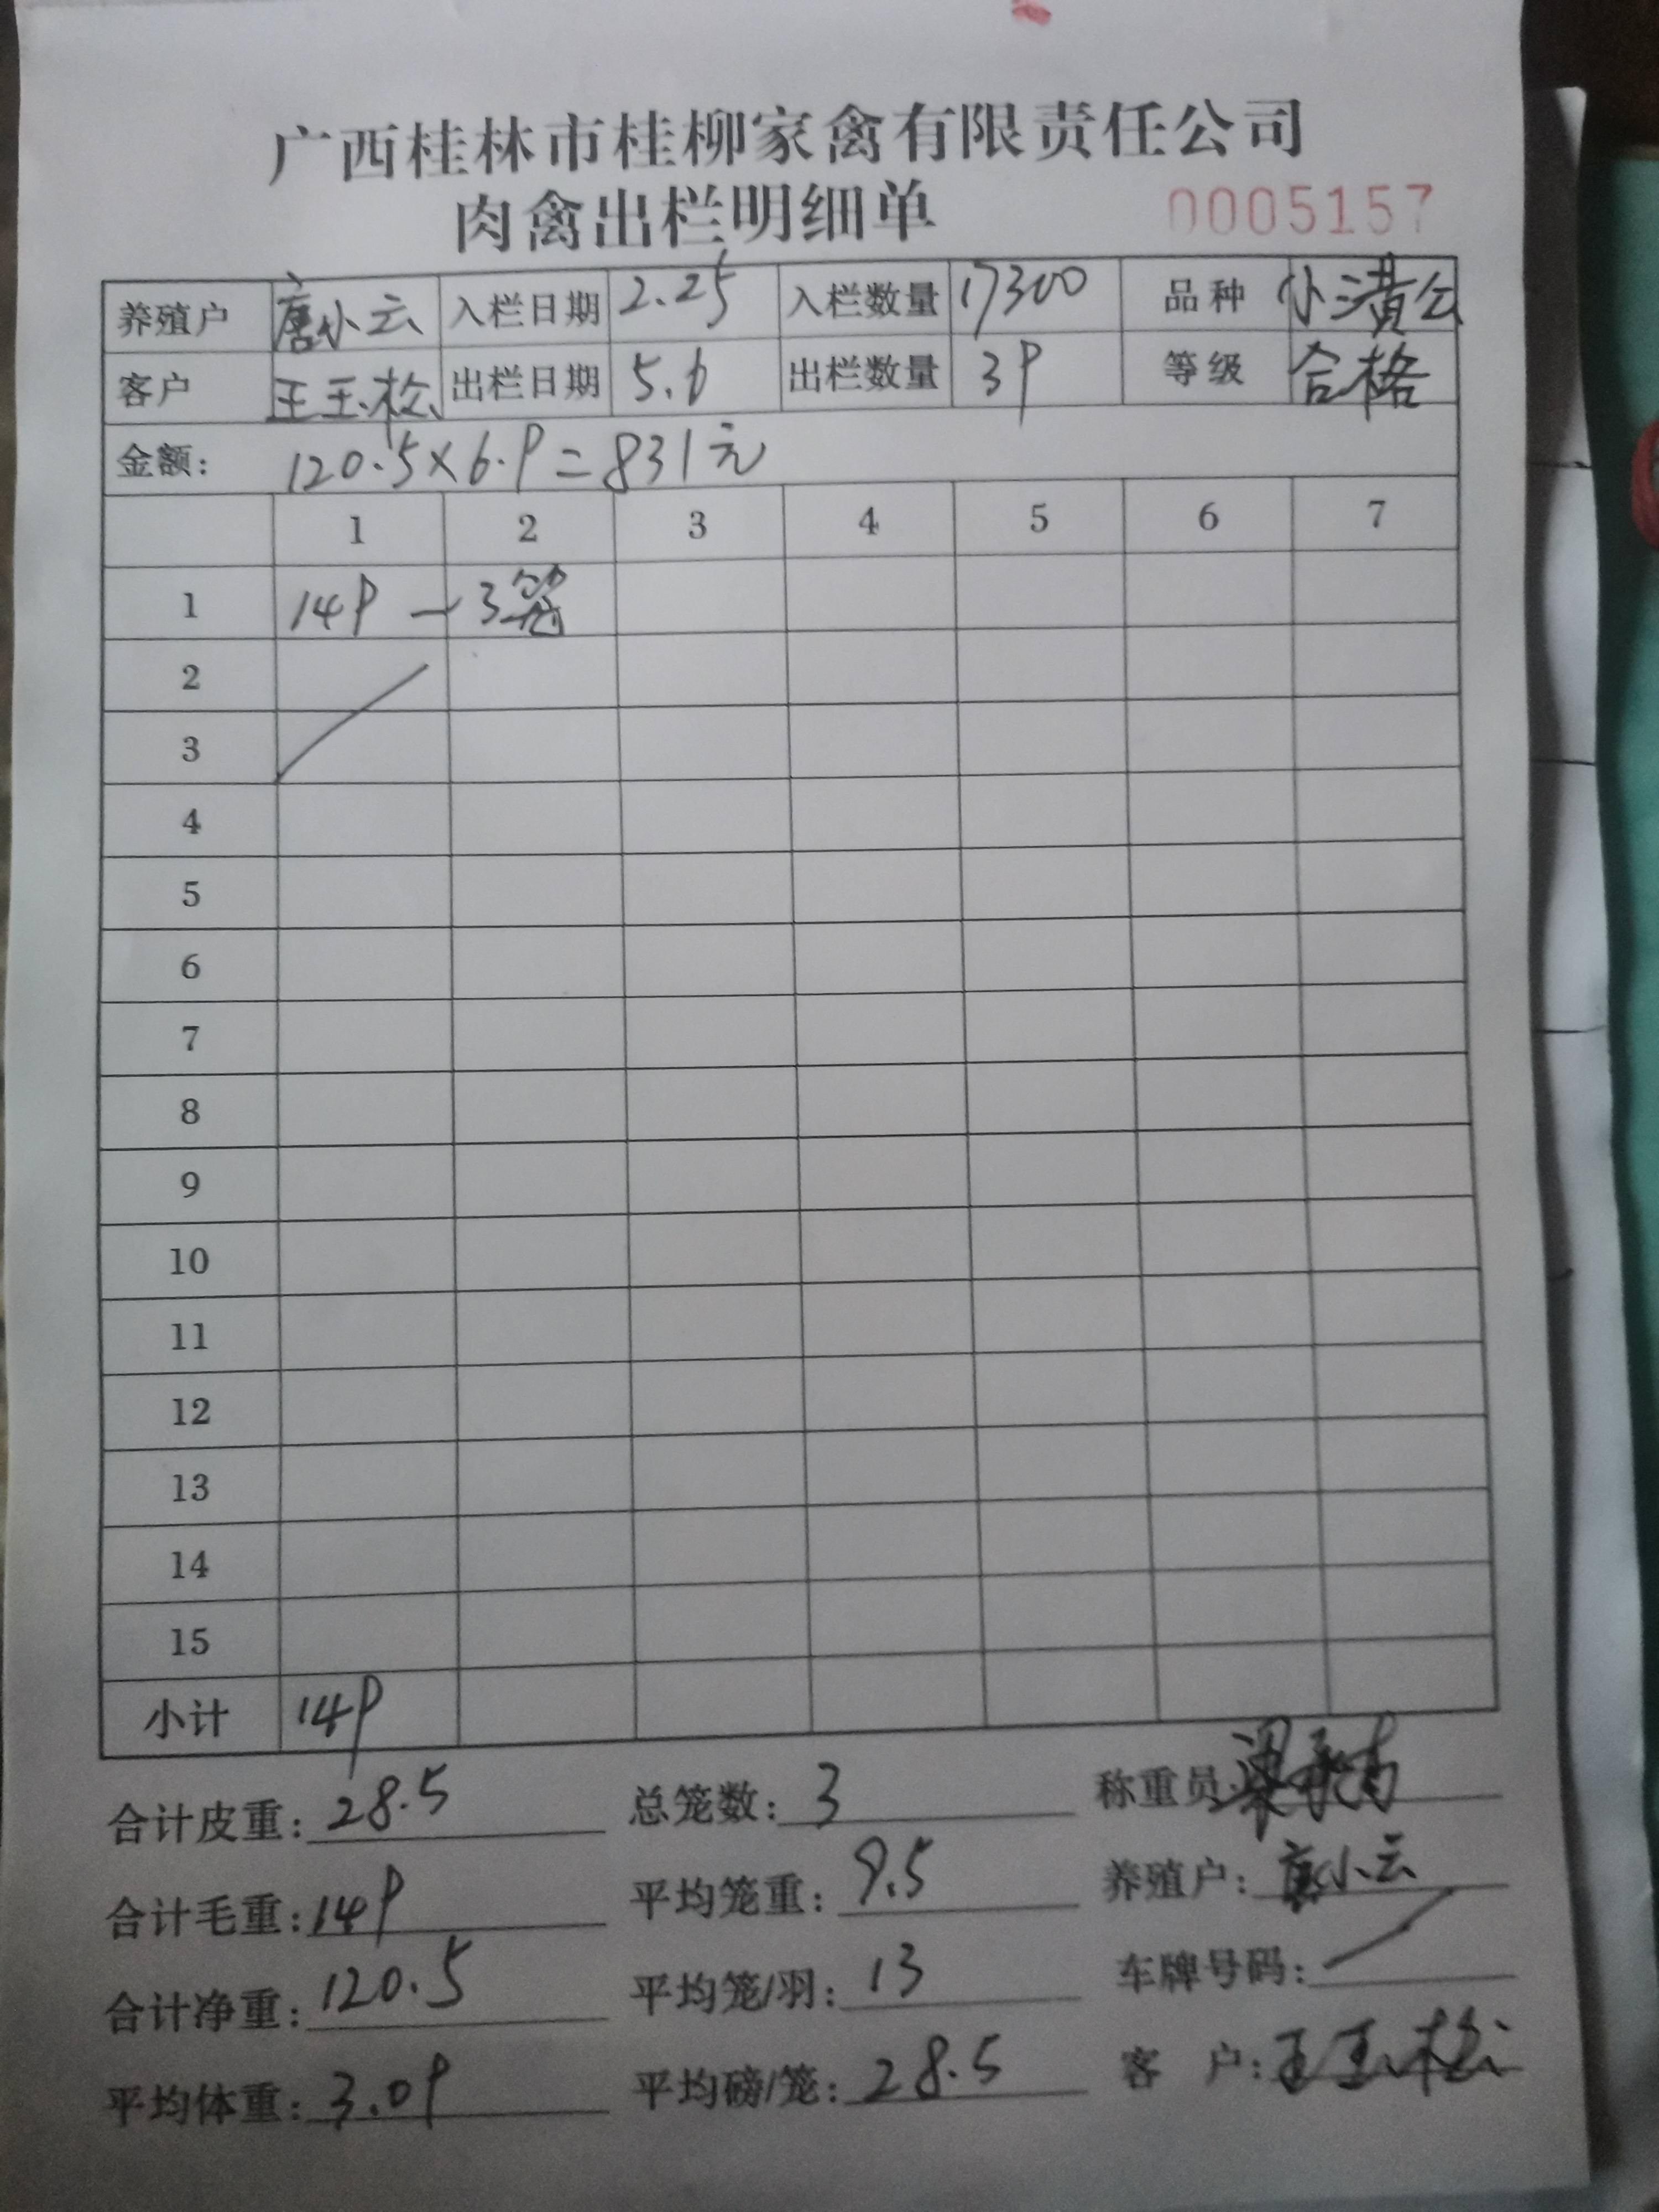 广西桂林市桂柳家禽有限责任公司
肉禽出栏明细单 0005157
养殖户 唐小云 入栏日期 2.25 入栏数量 17300 品种 小潢公
客户 王玉松 出栏日期 5.6 出栏数量 39 等级 合格
金额: 120.5×6.9=831元
1 2 3 4 5 6 7
1 149 - 3笼
2
3
4
5
6
7
8
9
10
11
12
13
14
15
小计 149
合计皮重: 28.5 总笼数: 3 称重员:
合计毛重: 149 平均笼重: 9.5 养殖户: 唐小云
合计净重: 120.5 平均笼/羽: 13 车牌号码:
平均体重: 3.09 平均磅/笼: 28.5 客户: 王玉松